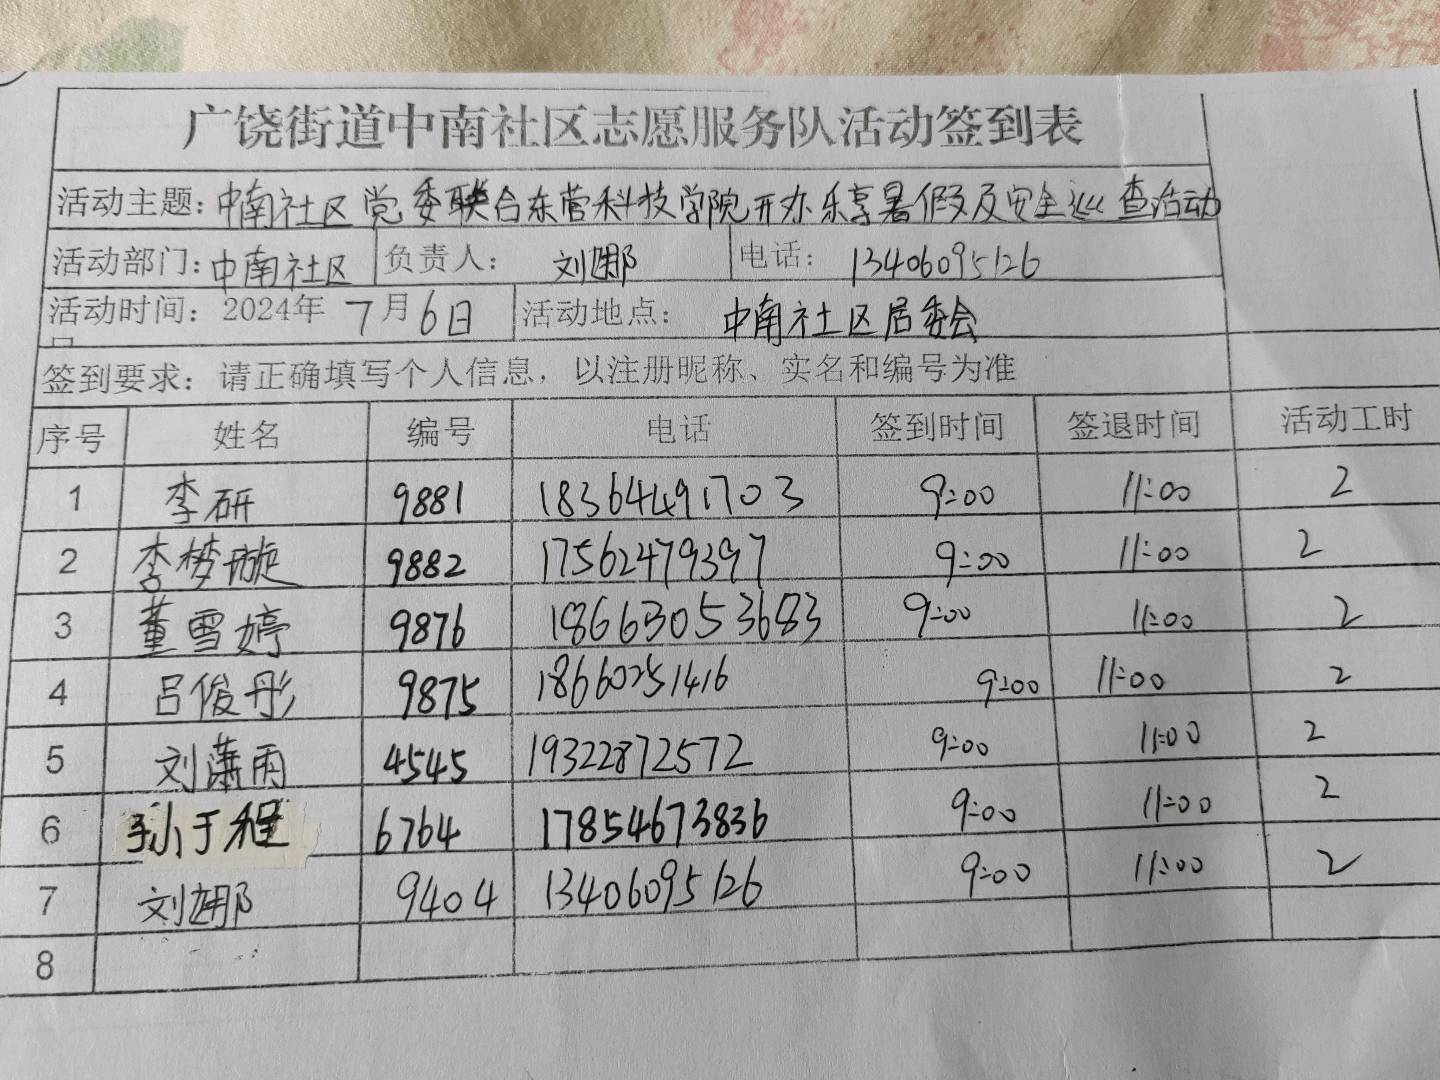 广饶街道中南社区志愿服务队活动签到表
活动主题：中南社区党委联合东营科技学院开办乐享暑假及安全巡查活动
活动部门：中南社区 负责人： 刘娜 电话： 13406095126
活动时间：2024年 7月6日 活动地点： 中南社区居委会
签到要求：请正确填写个人信息，以注册昵称、实名和编号为准
序号 姓名 编号 电话 签到时间 签退时间 活动工时
1 李研 9881 18364491703 9:00 11:00 2
2 李梦璇 9882 17562479397 9:00 11:00 2
3 董雪婷 9876 18663053683 9:00 11:00 2
4 吕俊彤 9875 18660251416 9:00 11:00 2
5 刘潇雨 4545 19322872572 9:00 11:00 2
6 孙于程 6764 17854673836 9:00 11:00 2
7 刘娜 9404 13406095126 9:00 11:00 2
8